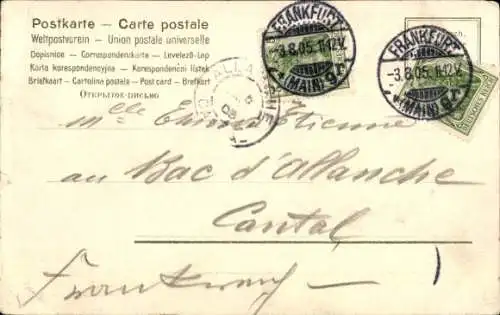 Postkarte – Carte postale
Weltpostverein – Union postale universelle
Dopisnice – Correspondenzkarte – Levelező-Lap
Karta korespondencyjna – Korespondenční lístek
Briefkaart – Cartolina postale – Post card – Brefkort
Открытое письмо
FRANKFURT
-3.8.05.11-12V.
(MAIN) 9
FRANKFURT
-3.8.05.11-12V.
(MAIN) 9
ALLANCHE
Mlle Etienne
au Bac d'Allanche
Cantal
Frankreich